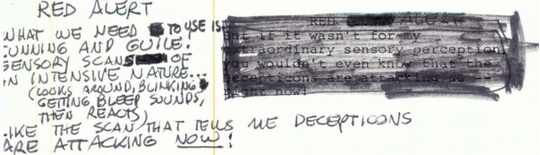 RED ALERT
WHAT WE NEED TO USE IS
CUNNING AND GUILE.
SENSORY SCANS OF
AN INTENSIVE NATURE...
(LOOKS AROUND, BLINKING
GETTING BLEEP SOUNDS,
THEN REACTS)
LIKE THE SCAN THAT TELLS ME DECEPTICONS
ARE ATTACKING NOW!
RED ALERT
But if it wasn't for my
extraordinary sensory perception
you wouldn't even know that the
Decepticons are attacking us --
right now!